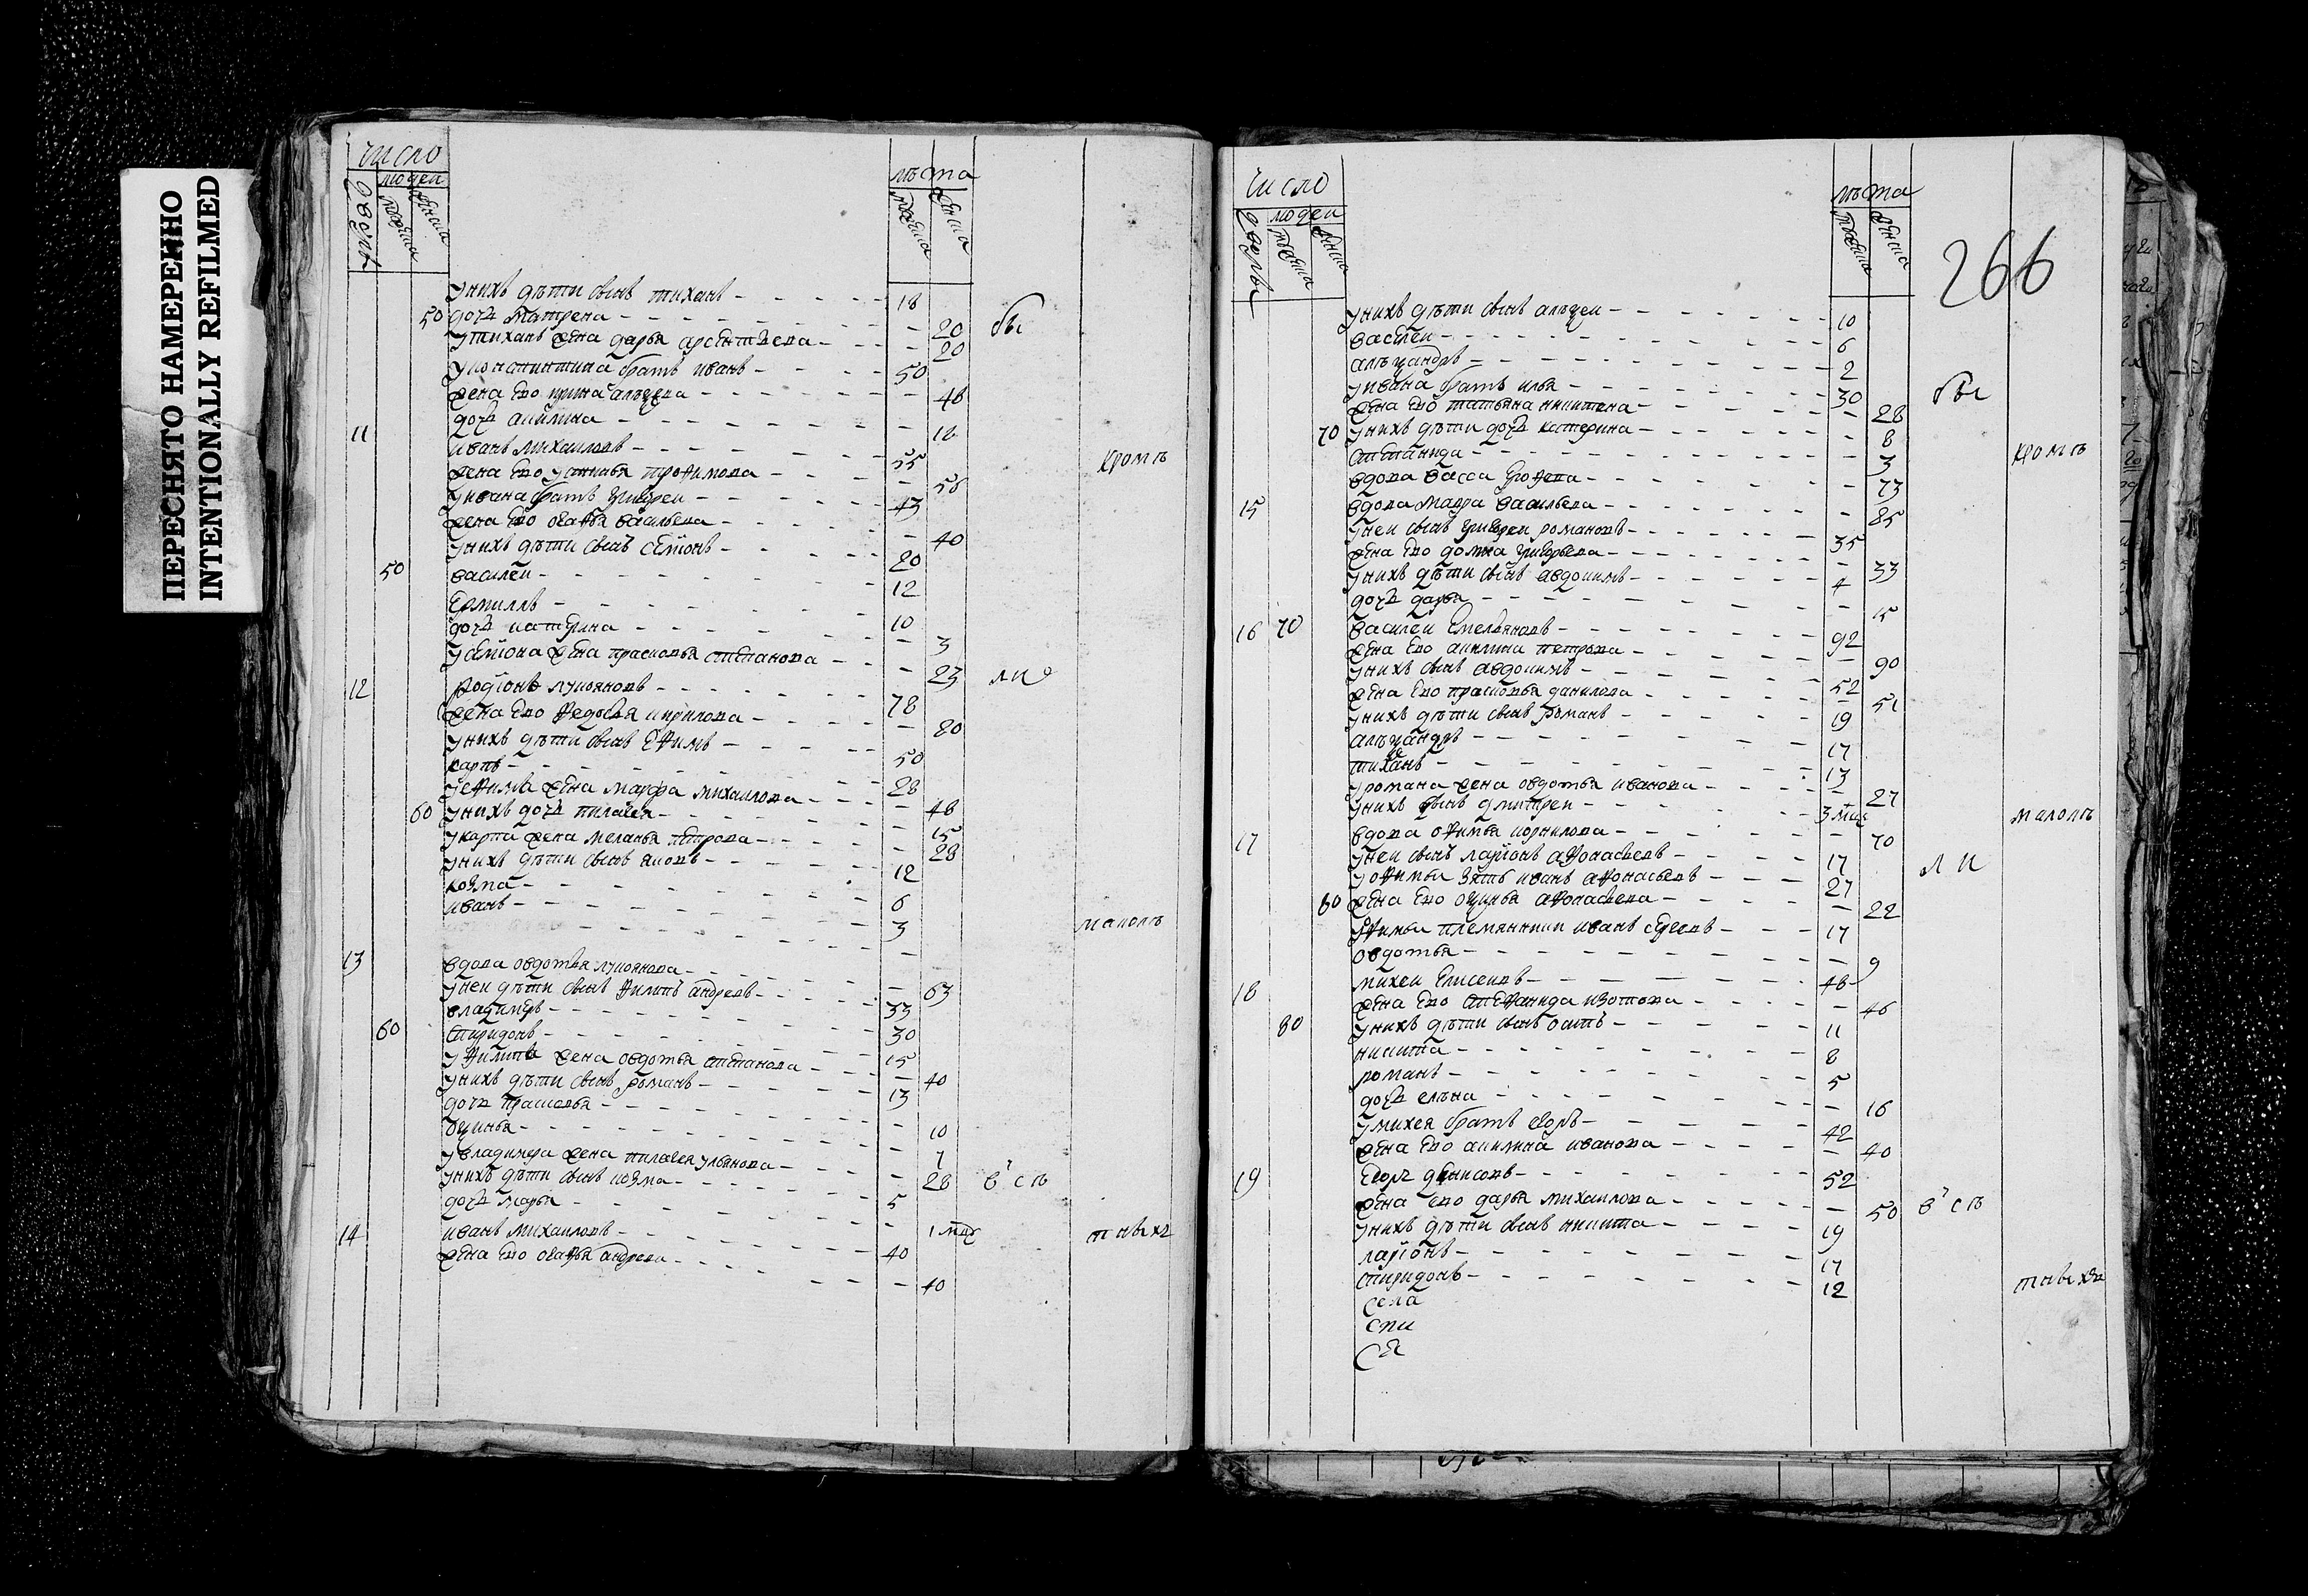 ПЕРЕСНЯТО НАМЕРЕННО
INTENTIONALLY REFILMED
число
людей
дворъ
мужеска
женска
лѣта
мужеска
женска
у нихъ дѣти сынъ тиханъ - 18
50 дочь матрена - 20 бы
у тихана жена дарья арсентьева - 20
братъ иванъ - 50
жена ево ирина алѣѯева - 46
дочь акилина - 18
11 иванъ михаиловъ - 55 кромѣ
жена ево устинья трофимова - 56
у ивана братъ григореи - 43
жена ево агафья васильева - 40
у нихъ дѣти сынъ семіонъ - 20
50 василеи - 12
ермилъ - 10
дочь катерина - 3
у семіона жена прасковья степанова - 23 ли
12 родіонъ лукояновъ - 78
жена ево федосья кирилова - 80
у нихъ дѣти сынъ ефимъ - 50
карпъ - 28
у ефима жена марфа михаилова - 48
60 у нихъ дочь пилагея - 15
у карпа жена меланья петрова - 28
у нихъ дѣти сынъ яковъ - 12
козма - 6
иванъ - 3
маломъ
13 вдова овдотья лукоянова - 63
у неи дѣти сынъ филипъ андреевъ - 33
владимеръ - 30
60 спиридонъ - 15
у филипа жена овдотья степанова - 40
у нихъ дѣти сынъ романъ - 13
дочь прасковья - 10
оѯинья - 7
у владимера жена пилагея ульянова - 28 в сѣ
у нихъ дѣти сынъ козма - 5
дочь марья - 1 мѣс
14 иванъ михаиловъ - 40 тныхъ
жена ево агафья андреева - 40
число
людей
дворы
мужеска
женска
лѣта
мужеска
женска
266
у нихъ дѣти сынъ алѣѯеи - 10
василеи - 6
алѣѯандръ - 2
у ивана братъ илья - 30 бы
жена ево татьяна никитена - 28
70 у нихъ дѣти дочь катерина - 8
степанида - 3 кромѣ
вдова васса - 73
15 вдова мавра васильева - 85
у неи сынъ григореи романовъ - 35
жена ево домна григорьева - 33
у нихъ дѣти сынъ авдокимъ - 4
дочь дарья - 15
16 70 василеи емельяновъ - 92
жена ево акилина петрова - 90
у нихъ сынъ авдокимъ - 52
жена ево прасковья данилова - 51
у нихъ дѣти сынъ романъ - 19
алѣѯандръ - 17
тиханъ - 13
у романа жена овдотья иванова - 27
у нихъ сынъ дмитреи - 3 мѣс маломъ
17 вдова офимья корнилова - 70
у неи сынъ ларіонъ афонасьевъ - 17 ли
у офимьи зять иванъ афонасьевъ - 27
80 жена ево оѯинья афонасьева - 22
у офимьи племянники иванъ - 17
овдотья - 9
18 михеи елисеивъ - 48
жена ево стефанида изотова - 46
80 у нихъ дѣти сынъ - 11
никита - 8
романъ - 5
дочь елѣна - 16
у михея братъ егоръ - 42
жена ево акилина иванова - 40
19 егоръ денисовъ - 52
жена ево дарья михаилова - 50 в сѣ
у нихъ дѣти сынъ никита - 19
ларіонъ - 17
спиридонъ - 12 тныхъ
села
спи